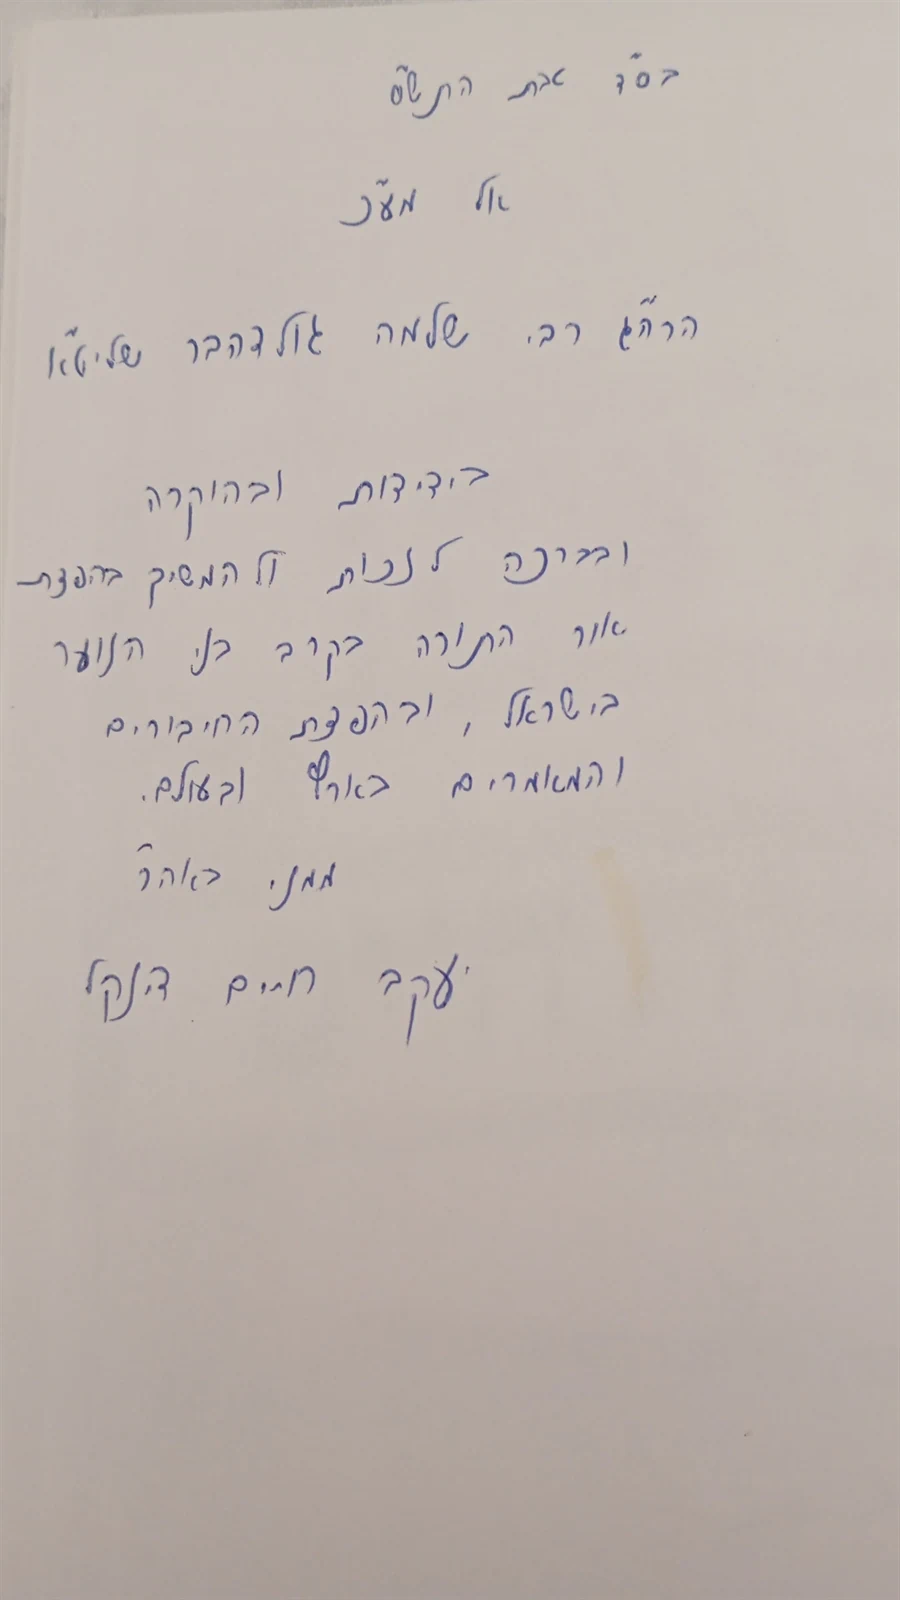 בס"ד טבת התש"ס
אל מע"כ
הרה"ג רבי שלמה גולדהבר שליט"א
בידידות ובהוקרה
ובברכה לזכות ולהמשיך בהפצת
אור התורה בקרב בני הנוער
בישראל, ובהפצת החיבורים
והמאמרים בארץ ובעולם.
ממני באהר"
יעקב חיים הינקל